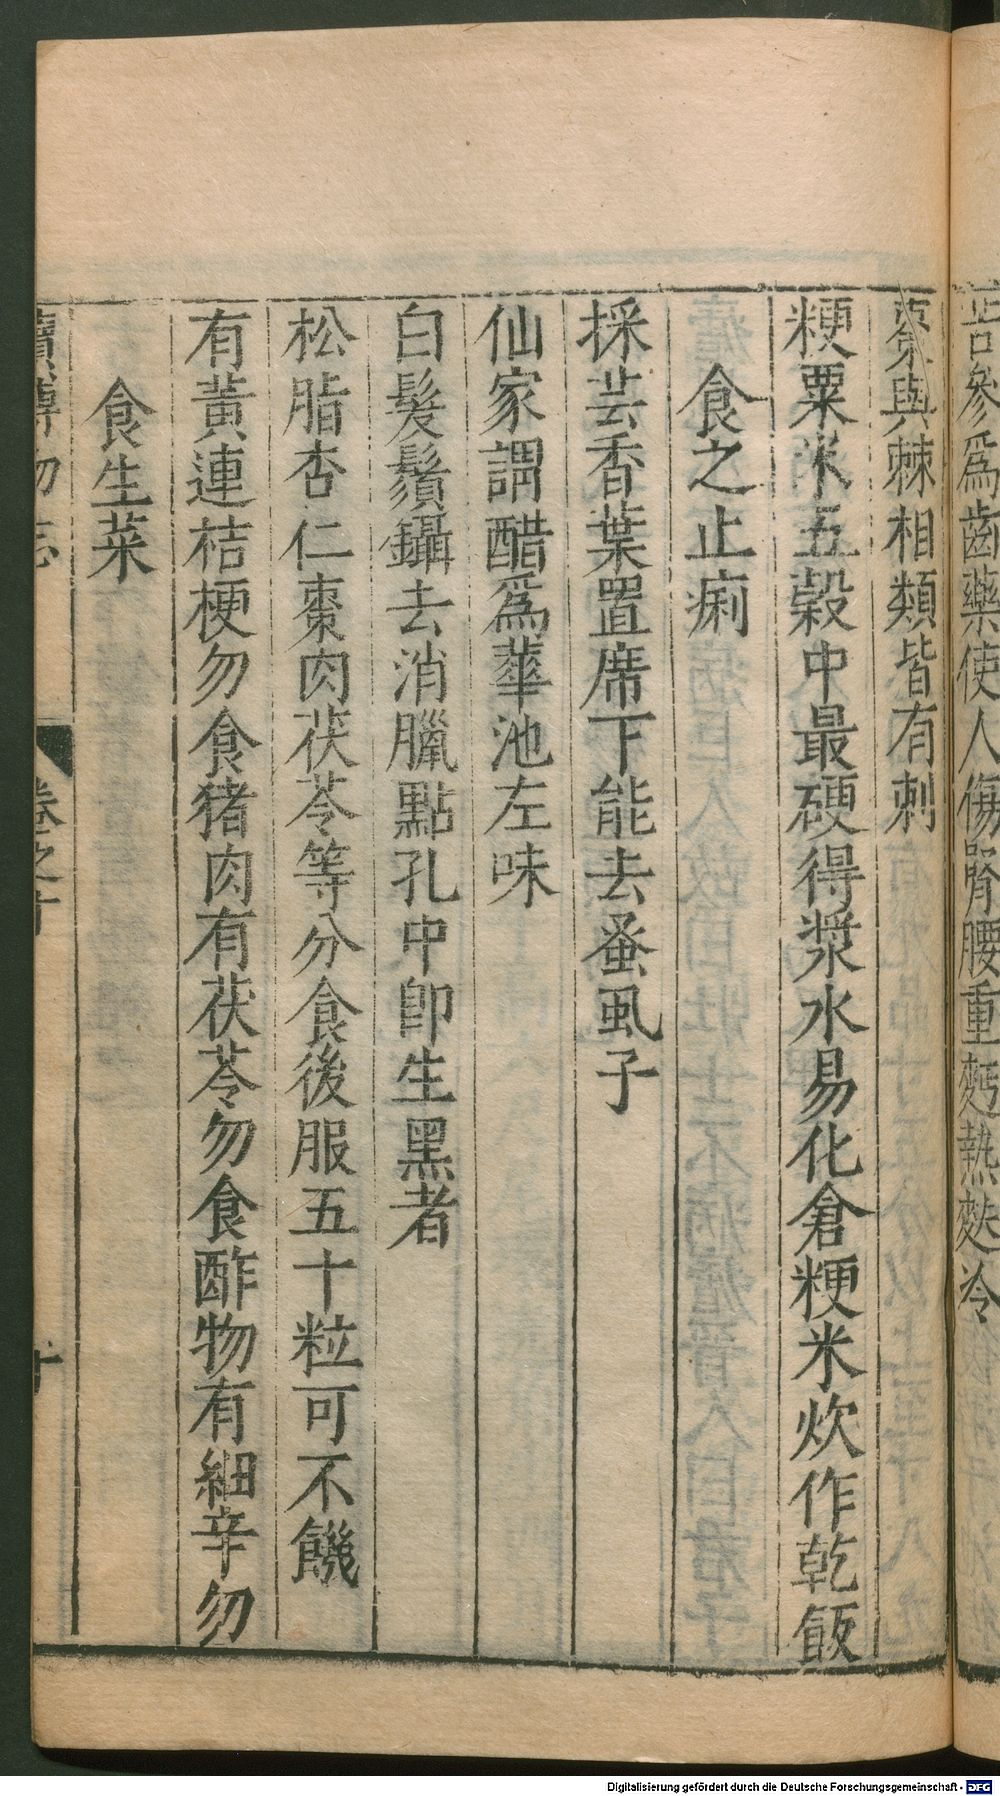 苦參爲齒藥使人傷腎腰重麪熱麩冷
棗與棘相類皆有刺
粳粟米五榖中最硬得漿水易化倉粳米炊作乾飯
食之止痢
採芸香葉置席下能去蚤虱子
仙家謂醋爲華池左味
白髮鬚鑷去消臘點孔中卽生黑者
松脂杏仁棗肉茯苓等分食後服五十粒可不饑
有黃連桔梗勿食猪肉有茯苓勿食酢物有細辛勿
食生菜
續博物志 卷之十 十
Digitalisierung gefördert durch die Deutsche Forschungsgemeinschaft - DFG